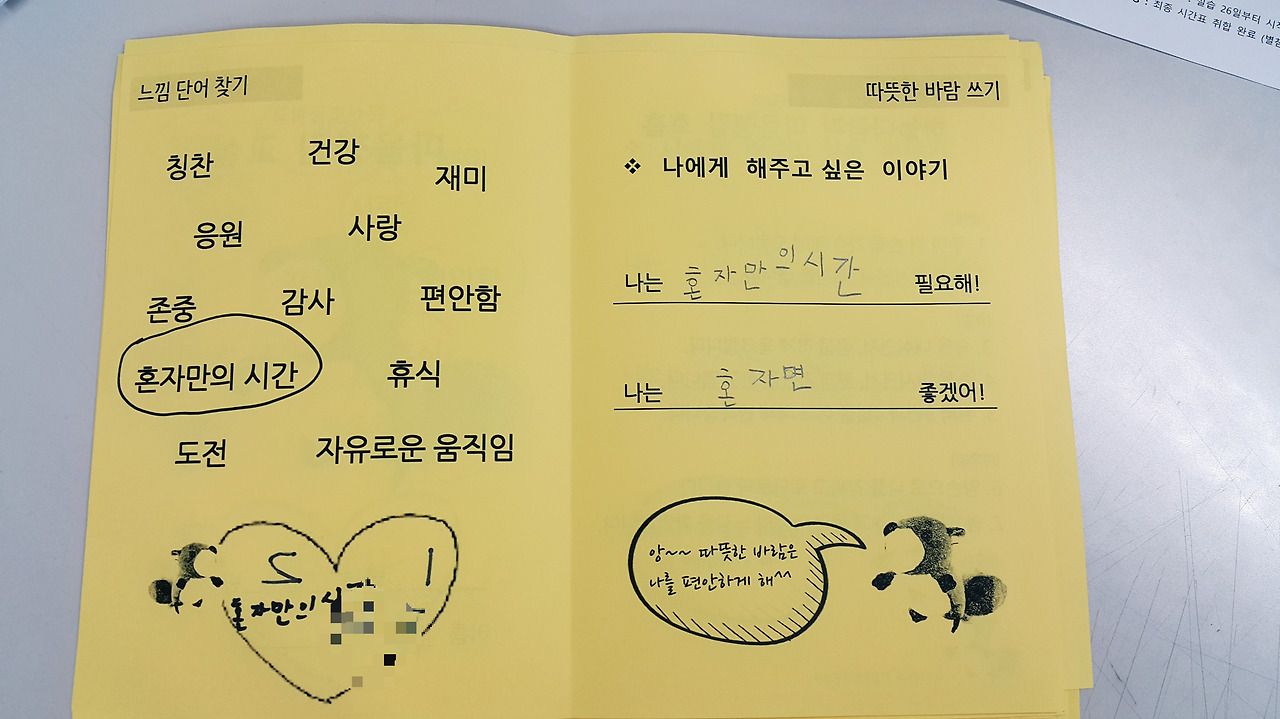 실습 26일부터 시작
: 최종 시간표 취합 완료 (별첨
느낌 단어 찾기
칭찬
건강
재미
응원
사랑
존중
감사
편안함
혼자만의 시간
휴식
도전
자유로운 움직임
2 1
혼자만의 시
따뜻한 바람 쓰기
❖ 나에게 해주고 싶은 이야기
나는 혼자만의시간 필요해!
나는 혼자면 좋겠어!
앙~~ 따뜻한 바람은
나를 편안하게 해^^